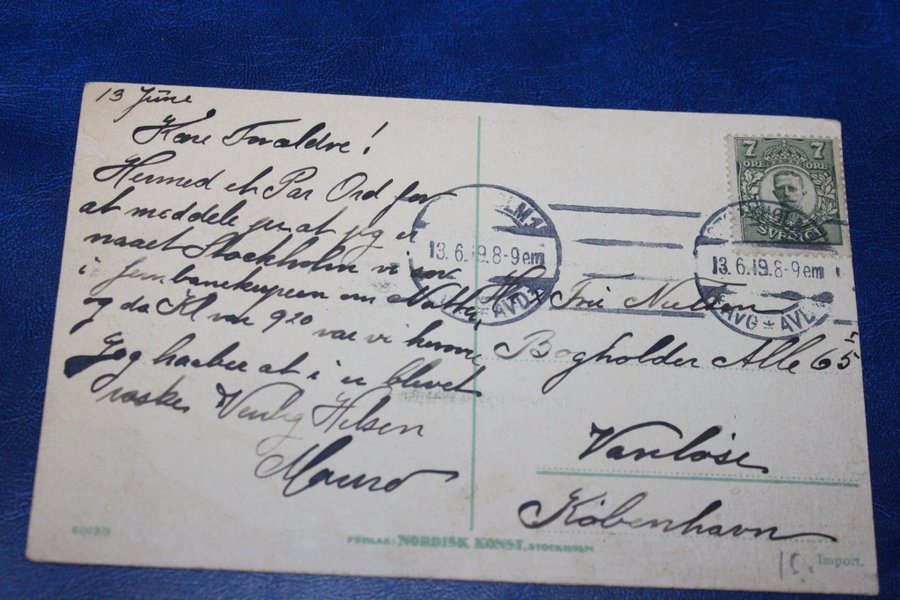 13 June
Kære Forældre!
Hermed et Par Ord for
at meddele jer at jeg er
naaet Stockholm vi sov
i Jernbanekupeen om Natten
og da Kl var 9 20 var vi
Jeg haaber at i er blevet
raske Venlig Hilsen
7 7
ÖRE ÖRE
SVERIGE
13.6.19.8-9em
AVG * AVD
13.6.19.8-9em
AVG * AVD
Hr Fru
Bogholder Alle 65
Vanløse
København
6003/9
FÖRLAG: NORDISK KONST, STOCKHOLM
Import.
15.